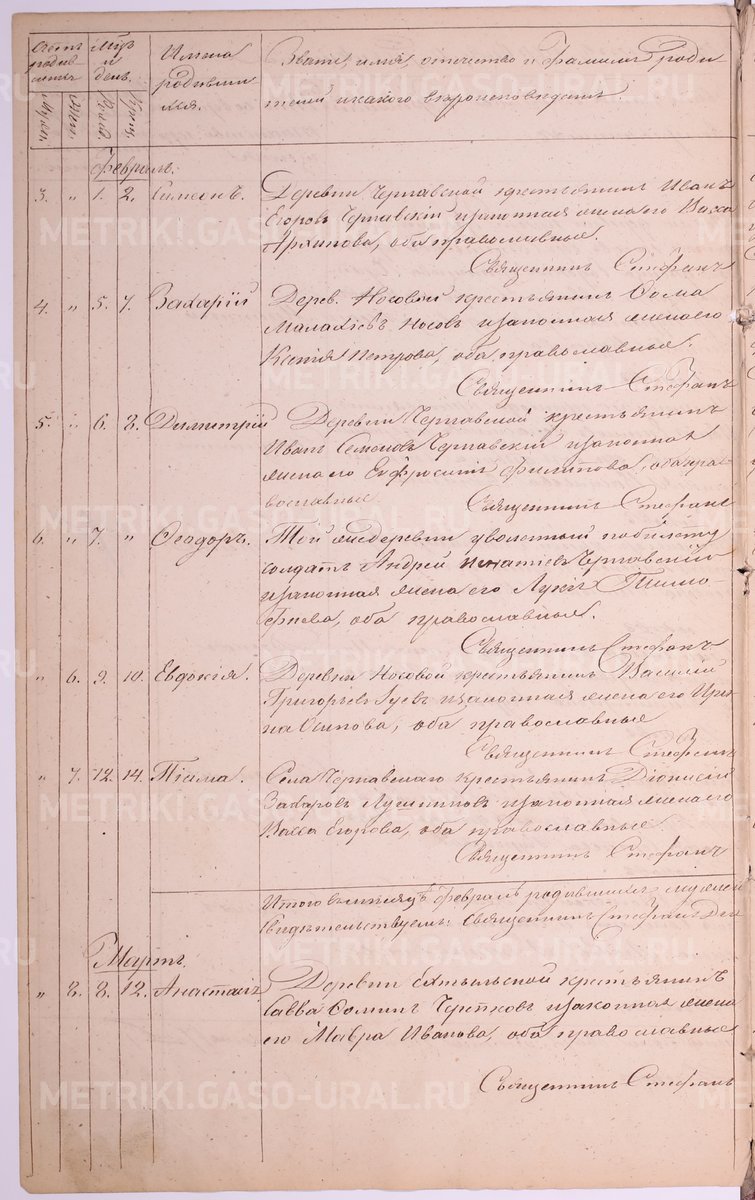 Счетъ родив шихъ
Мцъ и день.
Имена родивших ся.
Званіе, имя, отчество и фамилія роди
телей и какого вѣроисповѣданія.
Муж. Жен. Рожд. Крещ.
Февраль.
3. " 1. 2. Симеонъ. Деревни Чернавской крестьянинъ Иванъ
Егоровъ Чернавскій и законная жена его Васса
Архипова, оба православные.
Священникъ Стефанъ
4. " 5. 7. Захарій Дерев. Носовой крестьянинъ Ѳома
Малахіевъ Носовъ и законная жена его
Ксенія Петрова, оба православные.
Священникъ Стефанъ
5. " 6. 8. Димитрій Деревни Чернавской крестьянинъ
Иванъ Семеновъ Чернавскій и законная
жена его Евфросинія Филипова, оба пра
вославные. Священникъ Стефанъ
6. " 7. " Ѳеодоръ. Той же деревни уволенный по билету
солдатъ Андрей Игнатіевъ Чернавскій
и законная жена его Лукія Тимо-
феева, оба православные.
Священникъ Стефанъ
" 6. 9. 10. Евдокія. Деревни Носовой крестьянинъ Василій
Григорьевъ и законная жена его Ири
на Осипова, оба православные
Священникъ Стефанъ
" 7. 12. 14. Піама. Села Чернавскаго крестьянинъ Діонисій
Захаровъ и законная жена его
Васса Егорова, оба православные.
Священникъ Стефанъ
Итого въ мѣсяцѣ Февралѣ родившихся мужеск
Свидѣтельствуемъ: Священникъ Стефанъ
Мартъ.
" 8. 8. 12. Анастасія. Деревни крестьянинъ
Савва Ѳоминъ и законная жена
его Мавра Иванова, оба православные
Священникъ Стефанъ
METRIKI.GASO-URAL.RU